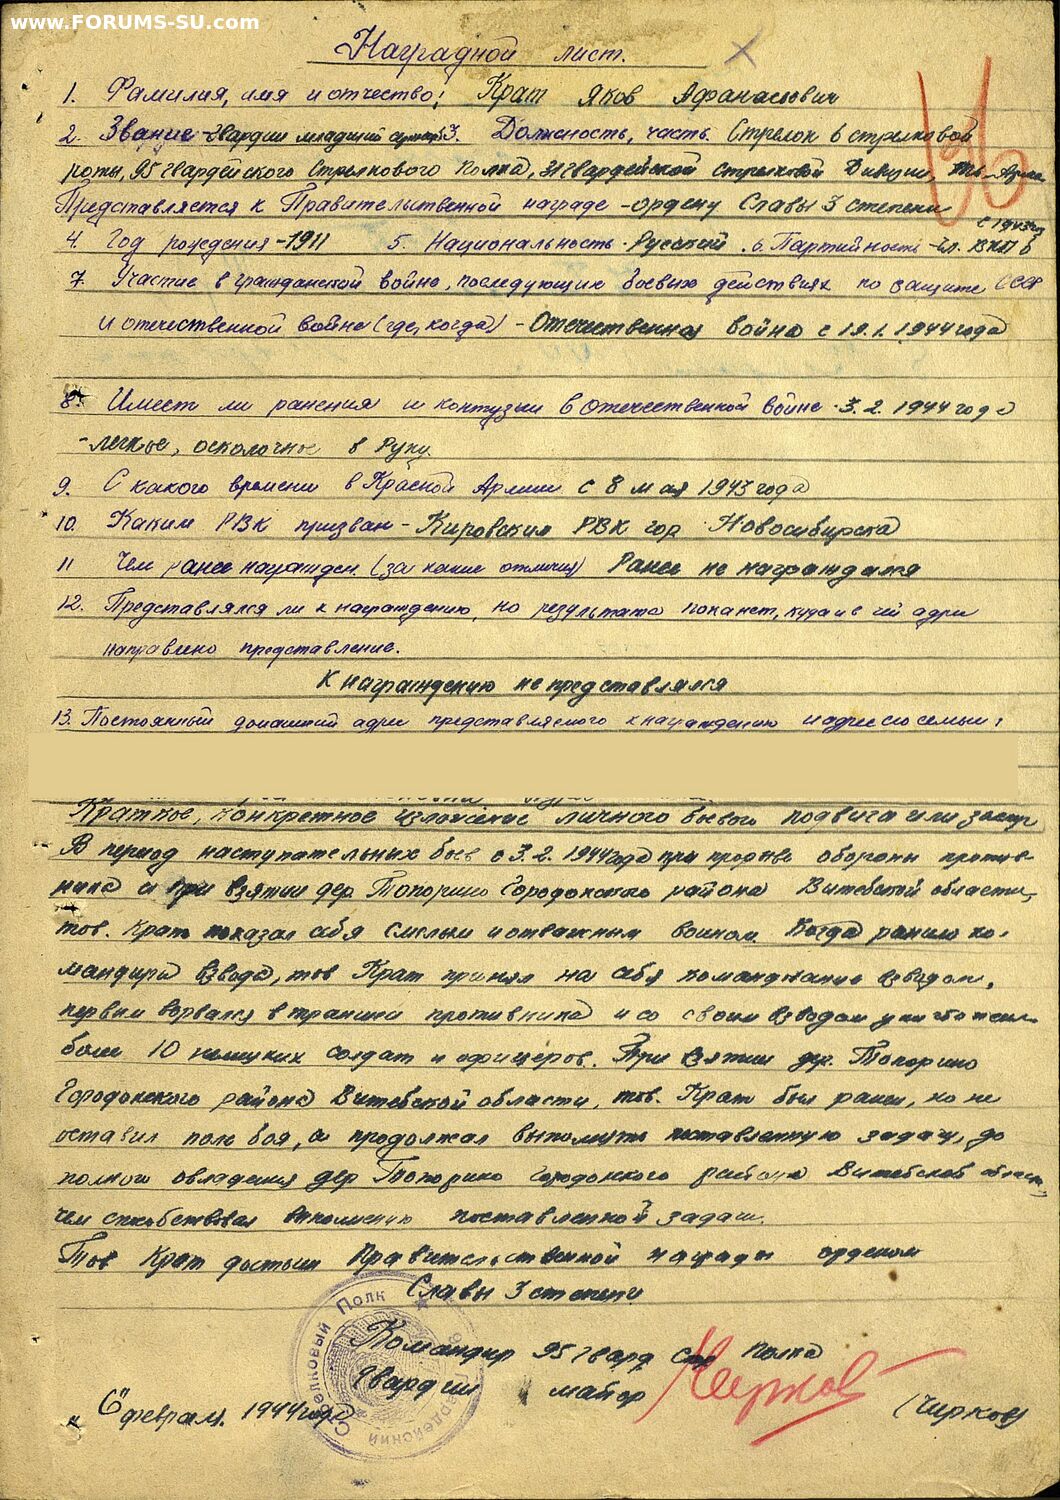 www.FORUMS-SU.com
Наградной лист.
1. Фамилия, имя и отчество: Крат Яков Афанасьевич
2. Звание - Гвардии младший сержант 3. Должность, часть. Стрелок 6 стрелковой
роты, 95 Гвардейского Стрелкового Полка, 31 Гвардейской Стрелковой Дивизии,
Представляется к Правительственной награде - ордену Славы 3 степени
с 1943 г
4. Год рождения - 1911 5. Национальность - Русский. 6. Партийность - чл. ВКП б
7. Участие в гражданской войне, последующих боевых действиях по защите СССР
и отечественной войне (где, когда) - Отечественная война с 19.1.1944 года
8. Имеет ли ранения и контузии в отечественной войне - 3.2.1944 года
- легкое, осколочное в Руку.
9. С какого времени в Красной Армии с 8 мая 1943 года
10. Каким РВК призван - Кировским РВК гор Новосибирска
11 Чем ранее награжден (за какие отличия) Ранее не награждался
12. Представлялся ли к награждению, но результата пока нет, куда и в чей адрес
направлено представление.
К награждению не представлялся
13. Постоянный домашний адрес представляемого к награждению и адрес его семьи:
Краткое, конкретное изложение личного боевого подвига или заслуг
В период наступательных боев с 3.2.1944 года при прорыве обороны против-
ника и при взятии дер. Топорино Городокского района Витебской области,
тов. Крат показал себя смелым и отважным воином. Когда ранило ко-
мандира взвода, тов Крат принял на себя командование взводом,
первым ворвался в траншеи противника и со своим взводом уничтожил
более 10 немецких солдат и офицеров. При взятии дер. Топорино
Городокского района Витебской области, тов. Крат был ранен, но не
оставил поле боя, а продолжал выполнять поставленную задачу, до
полного овладения дер Топорино Городокского района Витебской област,
чем способствовал выполнению поставленной задачи.
Тов Крат достоин Правительственной награды орденом
Славы 3 степени
Командир 95 Гвард. Стр Полка
Гвардии майор Чирков (Чирков)
"6" февраля 1944 года
95 Гвардейский Стрелковый Полк